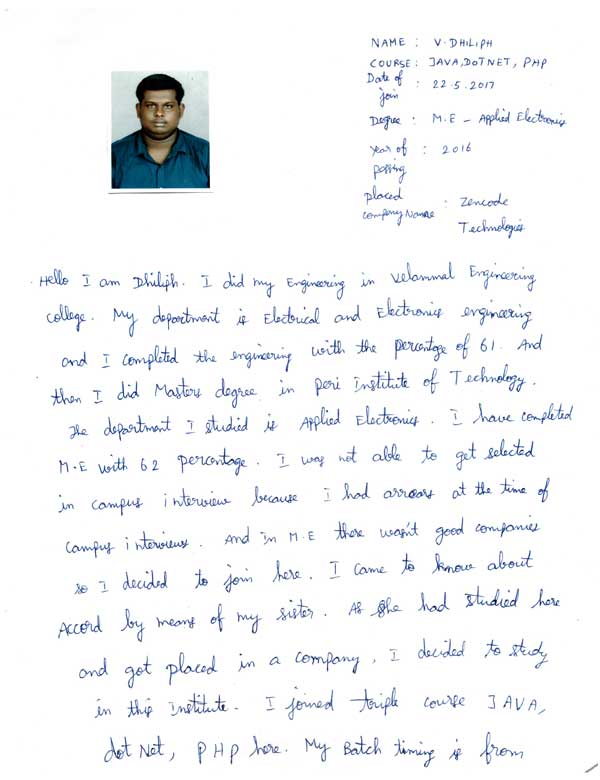 NAME : V. DHILIPH
COURSE : JAVA, DOTNET, PHP
Date of join : 22.5.2017
Degree : M.E – Applied Electronics
year of passing : 2016
placed company Name : Zencode Technologies
Hello I am Dhiliph. I did my Engineering in Velammal Engineering
college. My department is Electrical and Electronics engineering
and I completed the engineering with the percentage of 61. And
then I did Masters degree in Peri Institute of Technology.
The department I studied is Applied Electronics. I have completed
M.E with 62 percentage. I was not able to get selected
in campus interview because I had arrears at the time of
campus interviews. And in M.E there wasn't good companies
so I decided to join here. I came to know about
Accord by means of my sister. As she had studied here
and got placed in a company, I decided to study
in this Institute. I joined triple course JAVA,
dot Net, PHP here. My Batch timing is from